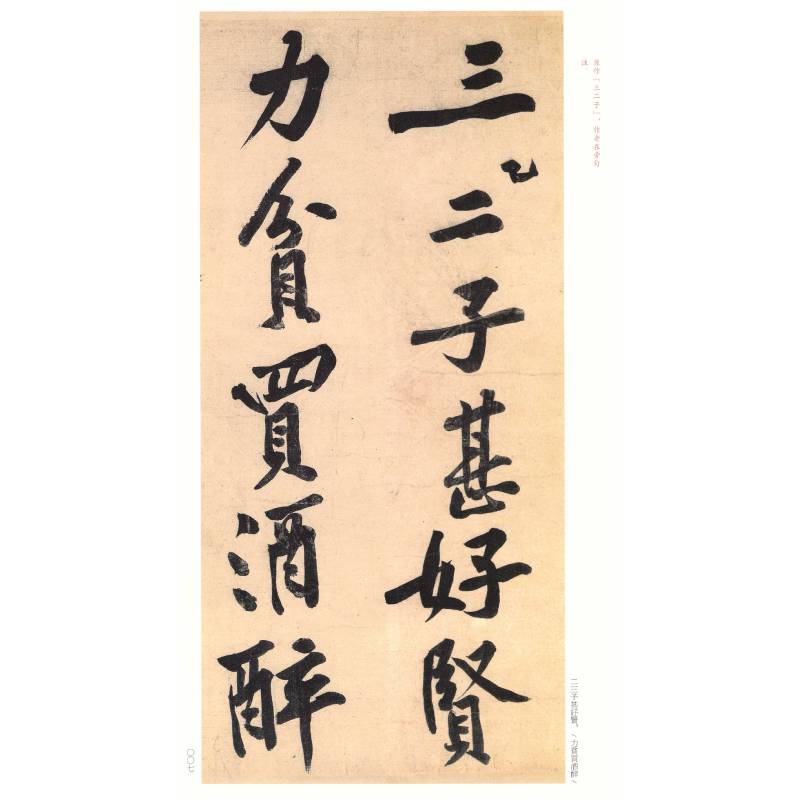 原作「三二子」，作者在旁勾
注。
三二子甚好賢
力貧買酒醉
二三子甚好賢。/力貧買酒醉/
〇〇七